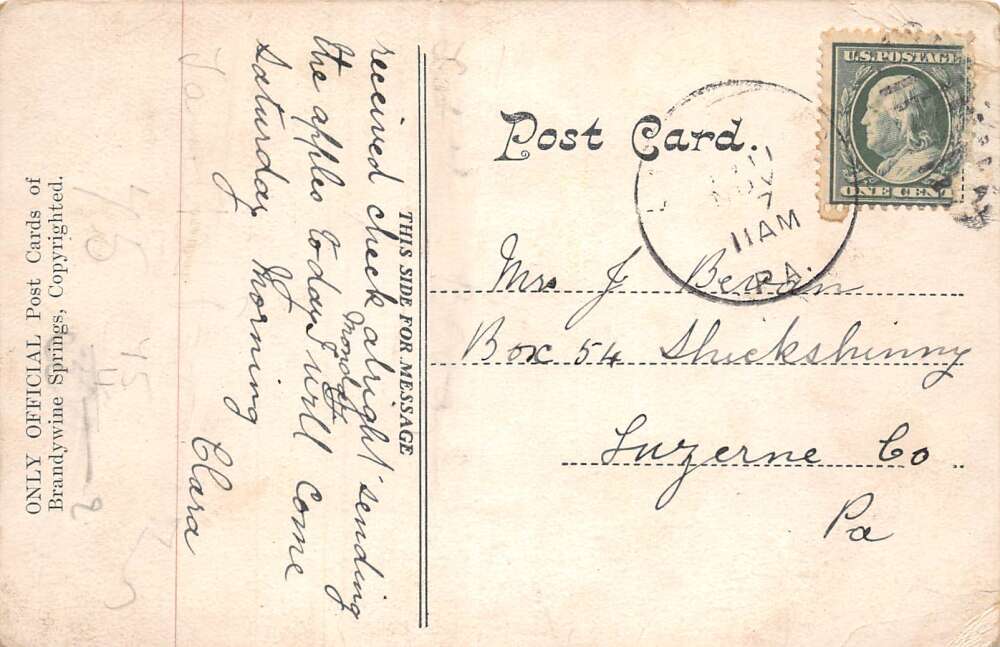 ONLY OFFICIAL Post Cards of
Brandywine Springs, Copyrighted.
received check alright sending
Monday
the apples today I will come
Saturday Morning
Clara
THIS SIDE FOR MESSAGE
Post Card.
U.S. POSTAGE
ONE CENT
NOV
7
11 AM
PA
Mrs J
Box 54 Shickshinny
Luzerne Co
Pa